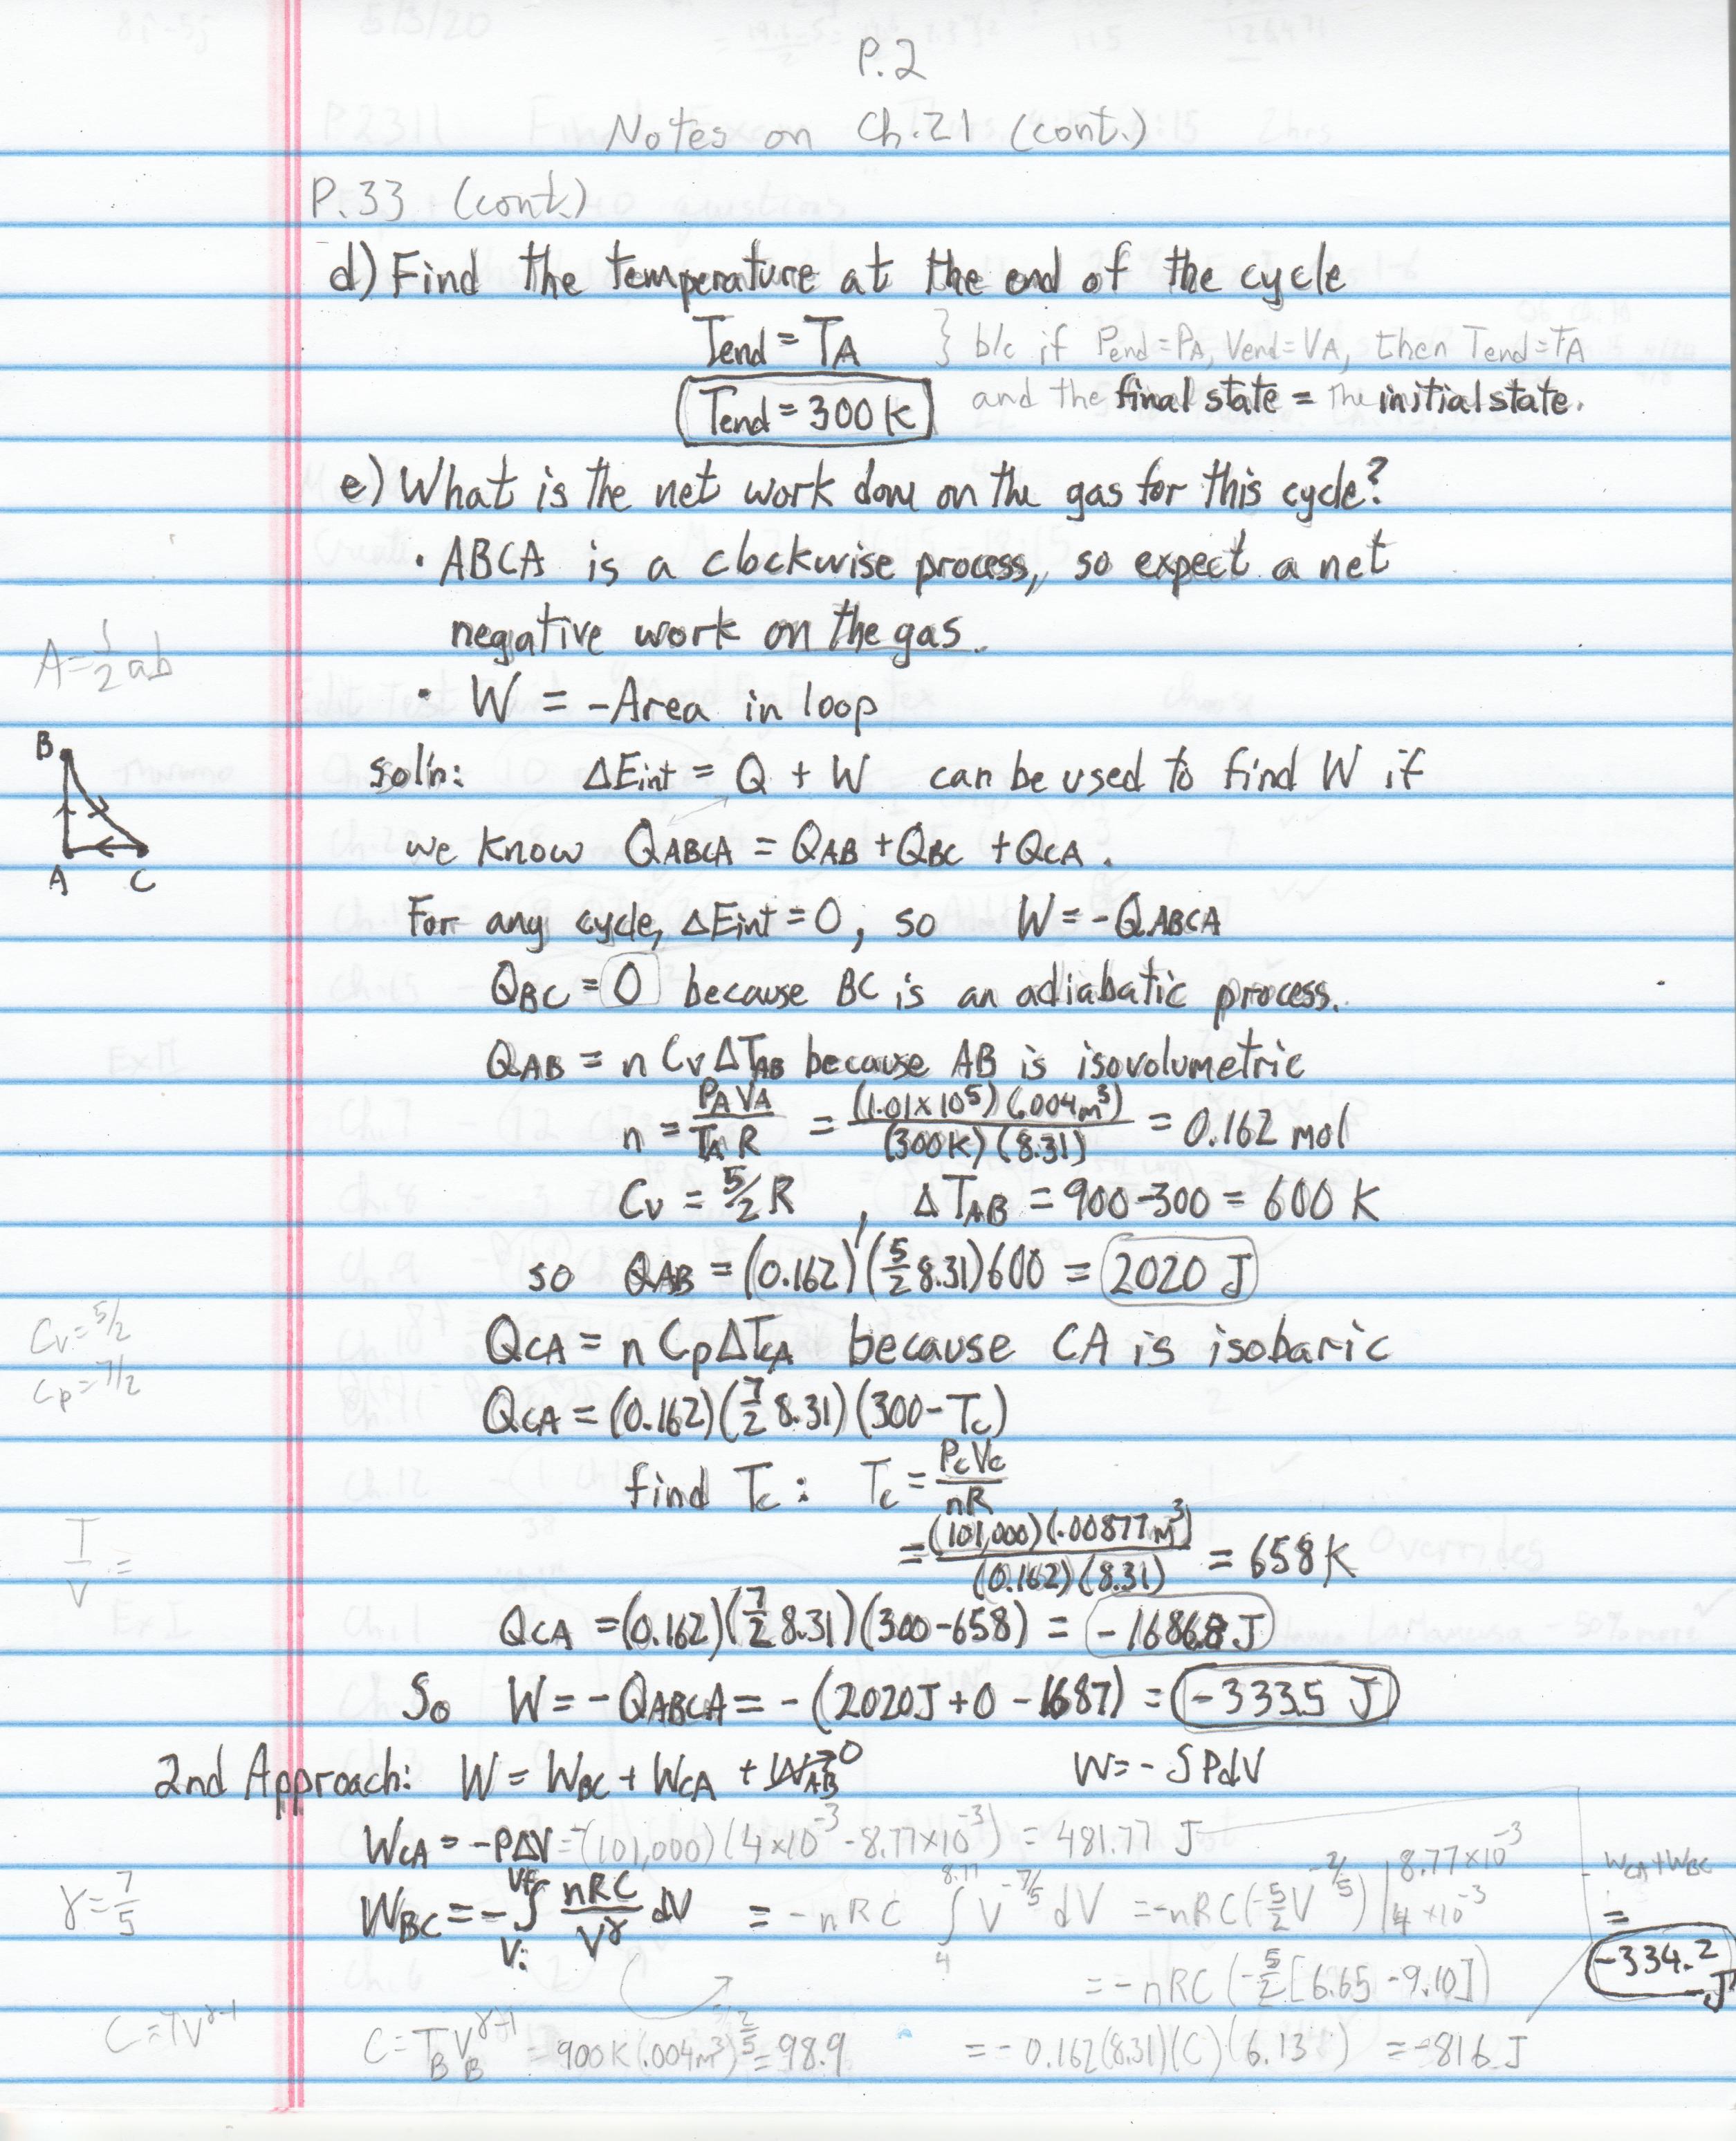 P.2
Notes on Ch.21 (cont.)
P.33 (cont.)
d) Find the temperature at the end of the cycle
Tend = TA } b/c if Pend=PA, Vend=VA, then Tend=TA
Tend = 300 K and the final state = the initial state.
e) What is the net work done on the gas for this cycle?
• ABCA is a clockwise process, so expect a net
negative work on the gas.
A=1/2 ab
• W = -Area in loop
B
A C
sol'n: ΔEint = Q + W can be used to find W if
we know QABCA = QAB + QBC + QCA.
For any cycle, ΔEint = 0, so W = -QABCA
QBC = 0 because BC is an adiabatic process.
QAB = n Cv ΔTAB because AB is isovolumetric
n = PAVA/TAR = (1.01×10^5)(.004m^3)/(300K)(8.31) = 0.162 mol
Cv = 5/2 R , ΔTAB = 900-300 = 600 K
so QAB = (0.162)(5/2 8.31)600 = 2020 J
Cv = 5/2
Cp = 7/2
QCA = n Cp ΔTCA because CA is isobaric
QCA = (0.162)(7/2 8.31)(300-Tc)
find Tc: Tc = PcVc/nR
T/V =
= (101,000)(.00877m^3)/(0.162)(8.31) = 658 K
QCA = (0.162)(7/2 8.31)(300-658) = -1686.8 J
So W = -QABCA = -(2020J + 0 - 1687) = -333.5 J
2nd Approach: W = WBC + WCA + WAB→0 W = -∫PdV
WCA = -PΔV = -(101,000)(4×10^-3 - 8.77×10^-3) = 481.77 J
γ = 7/5
WBC = -∫Vi Vf nRC/V^γ dV = -nRC ∫4 8.77 V^-7/5 dV = -nRC(-5/2 V^-2/5)|4×10^-3 8.77×10^-3
WCA + WBC
=
-334.2 J
= -nRC(-5/2[6.65 - 9.10])
C = TV^γ-1
C = TBVB^γ-1 = 900K(.004m^3)^2/5 = 98.9
= -0.162(8.31)(C)(6.13) = -816 J